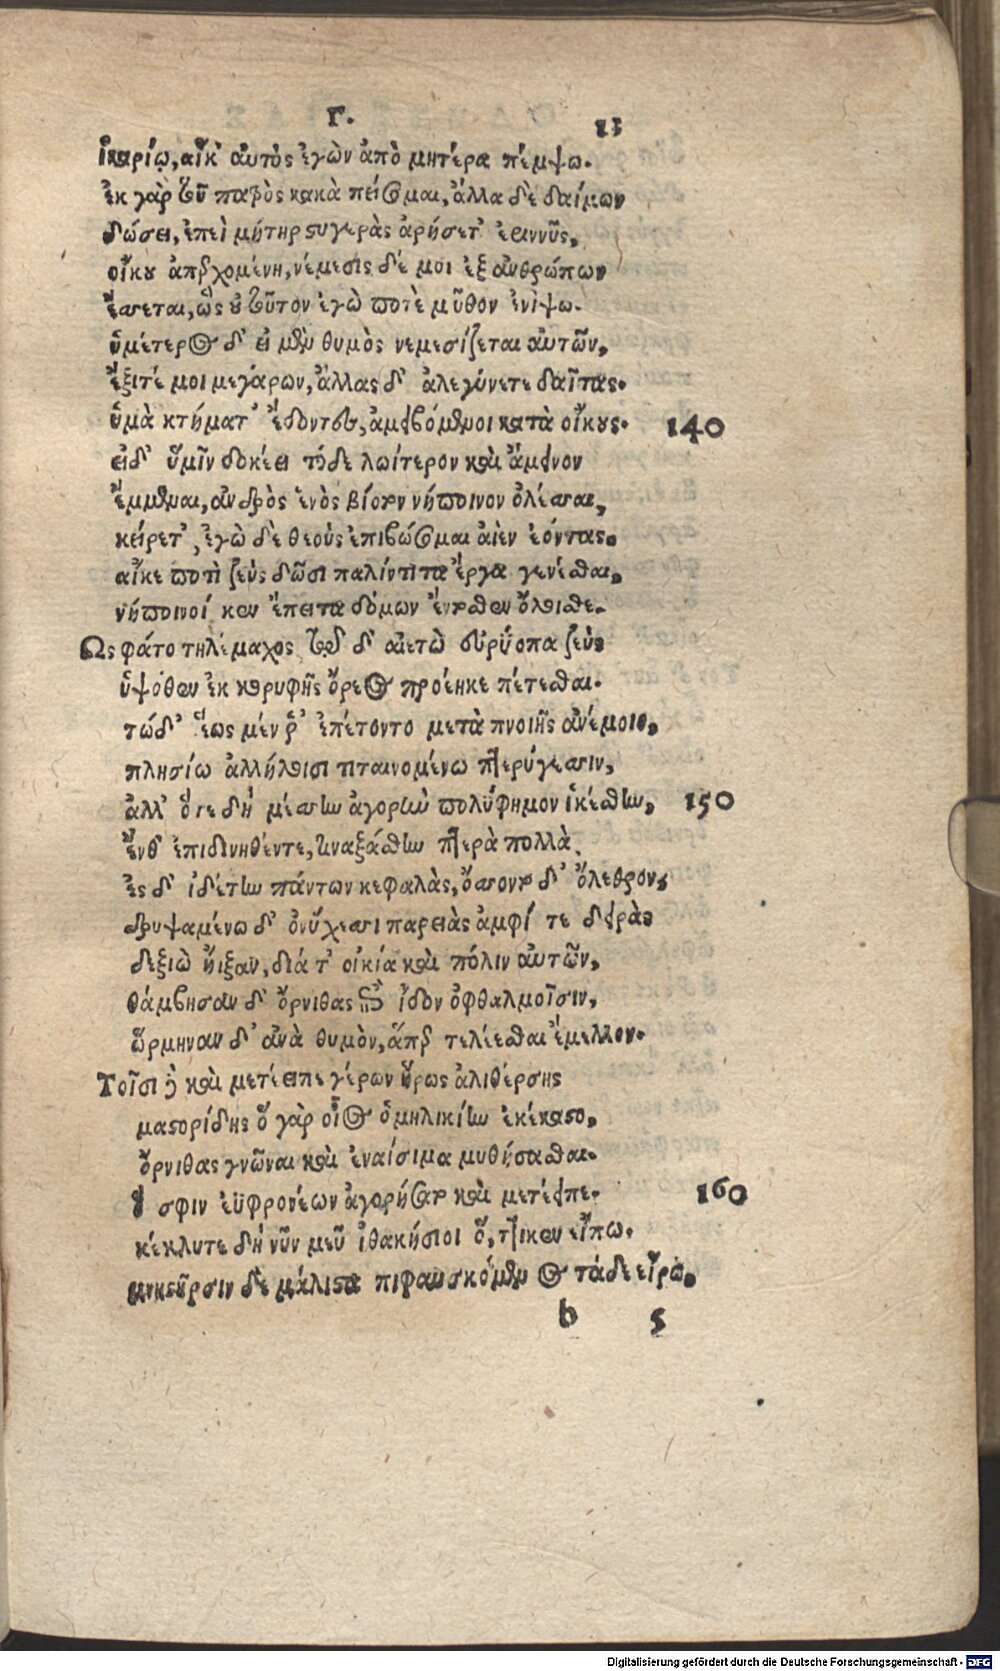 Γ.
23
ἰκαρίῳ, αἴκ' αὐτὸς ἐγὼν ἀπὸ μητέρα πέμψω.
ἐκ γὰρ τοῦ πατρὸς κακὰ πείσομαι, ἄλλα δὲ δαίμων
δώσει, ἐπεὶ μήτηρ στυγερὰς ἀρήσετ' ἐριννῦς,
οἴκου ἀπερχομένη, νέμεσις δέ μοι ἐξ ἀνθρώπων
ἔσσεται, ὣς οὐ τοῦτον ἐγὼ ποτὲ μῦθον ἐνίψω.
ὑμέτερος δ' εἰ μὲν θυμὸς νεμεσίζεται αὐτῶν,
ἔξιτέ μοι μεγάρων, ἄλλας δ' ἀλεγύνετε δαῖτας.
ὑμὰ κτήματ' ἔδοντες, ἀμειβόμενοι κατὰ οἴκους. 140
εἰ δ' ὑμῖν δοκέει τόδε λωίτερον καὶ ἄμεινον
ἔμμεναι, ἀνδρὸς ἑνὸς βίοτον νήποινον ὀλέσσαι,
κείρετ', ἐγὼ δὲ θεοὺς ἐπιβώσομαι αἰὲν ἐόντας.
αἴκε ποτὶ ζεὺς δῶσι παλίντιτα ἔργα γενέσθαι,
νήποινοί κεν ἔπειτα δόμων ἔντοσθεν ὄλεισθε.
Ὣς φάτο τηλέμαχος τῷ δ' αἰετὼ εὐρύοπα ζεὺς
ὑψόθεν ἐκ κορυφῆς ὄρεος προέηκε πέτεσθαι.
τώδ' ἕως μέν ῥ' ἐπέτοντο μετὰ πνοιῇς ἀνέμοιο,
πλησίω ἀλλήλοισι τιταινομένω πτερύγεσσιν,
ἀλλ' ὅτε δὴ μέσσην ἀγορὴν πολύφημον ἱκέσθην, 150
ἔνθ' ἐπιδινηθέντε, τιναξάσθην πτερὰ πολλὰ,
ἐς δ' ἰδέτην πάντων κεφαλὰς, ὄσσοντο δ' ὄλεθρον,
δρυψαμένω δ' ὀνύχεσσι παρειὰς ἀμφί τε δειρὰς
δεξιὼ ἤιξαν, διά τ' οἰκία καὶ πόλιν αὐτῶν,
θάμβησαν δ' ὄρνιθας ἐπεὶ ἴδον ὀφθαλμοῖσιν,
ὥρμηναν δ' ἀνὰ θυμὸν, ἅπερ τελέεσθαι ἔμελλον.
Τοῖσι δὲ καὶ μετέειπε γέρων ἥρως ἁλιθέρσης
μαστορίδης ὃ γὰρ οἶος ὁμηλικίην ἐκέκαστο,
ὄρνιθας γνῶναι καὶ ἐναίσιμα μυθήσασθαι.
ὅ σφιν ἐϋφρονέων ἀγορήσατο καὶ μετέειπε. 160
κέκλυτε δὴ νῦν μεῦ ἰθακήσιοι ὅ, ττι κεν εἴπω.
μνηστῆρσιν δὲ μάλιστα πιφαυσκόμενος τάδε εἴρω,
b 5
Digitalisierung gefördert durch die Deutsche Forschungsgemeinschaft - DFG